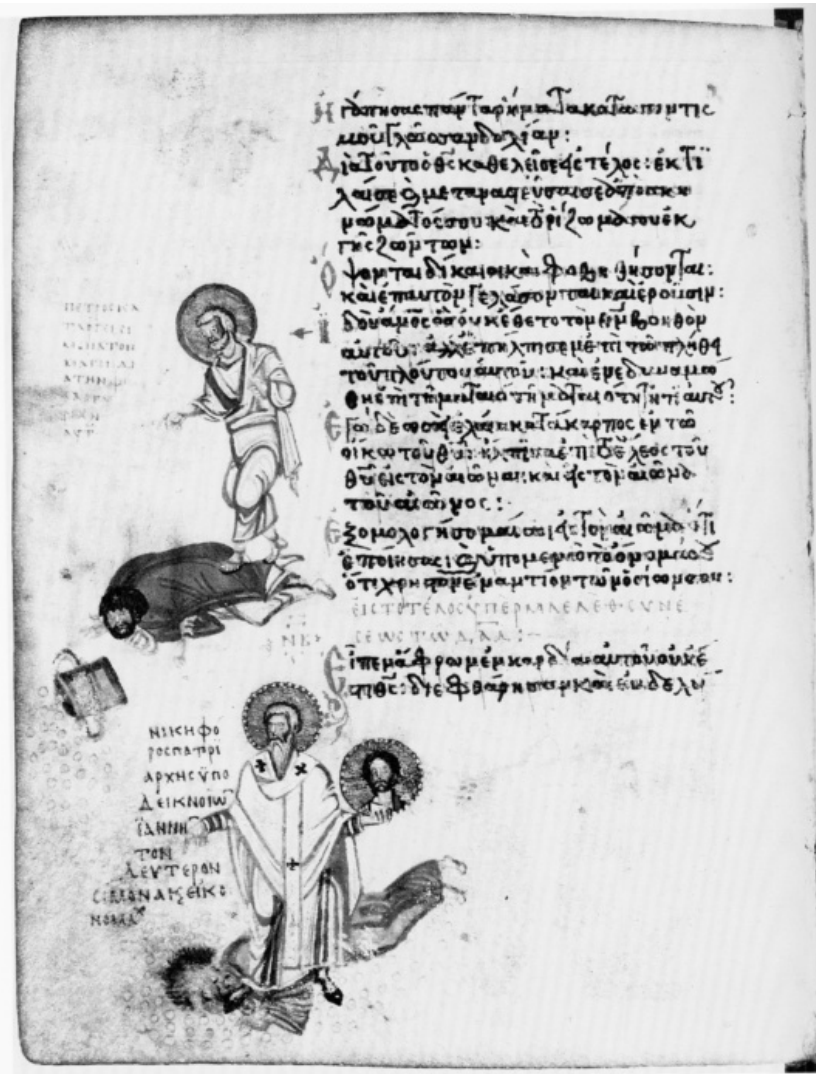 Ἠγάπησας πάντα ῥήματα καταποντις
μοῦ γλῶσσαν δολίαν:
Διὰ τοῦτο ὁ θς καθελεῖ σε εἰς τέλος: ἐκτί
λαι σε ϗ μεταναστεύσαι σε ἀπὸ σκη
νώματός σου καὶ τὸ ῥίζωμά σου ἐκ
γῆς ζώντων:
Ὄψονται δίκαιοι καὶ φοβηθήσονται:
καὶ ἐπ αὐτὸν γελάσονται καὶ ἐροῦσιν:
Ἰδοὺ ἄνος ὃς οὐκ ἔθετο τὸν θν βοηθὸν
αὐτοῦ: ἀλλ ἐπήλπισεν ἐπὶ τῶ πλήθει
τοῦ πλούτου αὐτοῦ: καὶ ἐνεδυναμώ
θη ἐπὶ τῆ ματαιότητι αὐτοῦ:
Ἐγὼ δὲ ὡσεὶ ἐλαία κατάκαρπος ἐν τῶ
οἴκω τοῦ θυ: ἤλπισα ἐπὶ τὸ ἔλεος τοῦ
θυ εἰς τὸν αἰῶνα: καὶ εἰς τὸν αἰῶνα
τοῦ αἰῶνος:
Ἐξομολογήσομαί σοι εἰς τὸν αἰῶνα ὅτι
ἐποίησας: ϗ ὑπομενῶ τὸ ὄνομά σου
ὅτι χρηστὸν ἐναντίον τῶν ὁσίων σου:
ΕΙΣ ΤΟ ΤΕΛΟΣ ΥΠΕΡ ΜΑΕΛΕΘ ΣΥΝΕ
ΣΕΩΣ ΤΩ ΔΑΔ:
Εἶπεν ἄφρων ἐν καρδία αὐτοῦ οὐκ ἔ
στι θς: διεφθάρησαν καὶ ἐβδελύ
ΠΕΤΡΟΣ ΚΑ
ΝΙΚΗΦΟ
ΡΟΣ ΠΑΤΡΙ
ΑΡΧΗΣ ΫΠΟ
ΔΕΙΚΝΟΙΩ
ΪΑΝΝΗ
ΤΟΝ
ΔΕΥΤΕΡΟΝ
ΣΙΜΟΝΑ Κ ΕΙΚΟ
ΝΟΜΑΧ